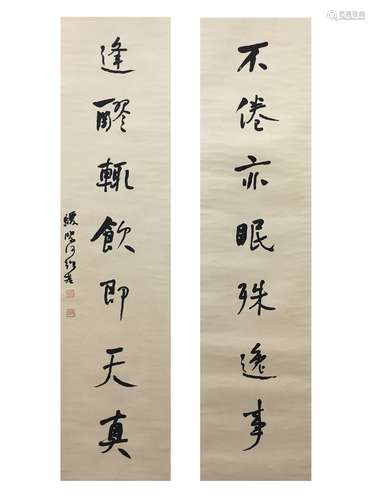 不倦亦眠殊逸事
逢醪輒飲即天真
蝯叟何紹基